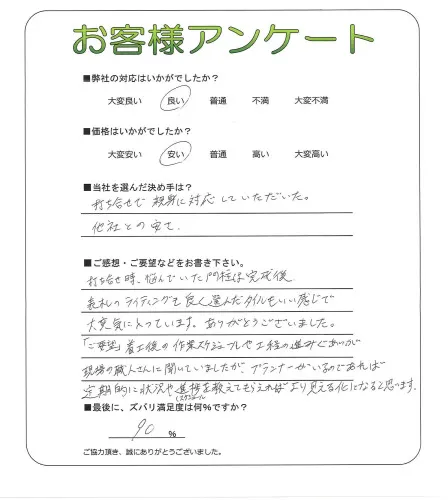 お客様アンケート
■弊社の対応はいかがでしたか？
大変良い 良い 普通 不満 大変不満
■価格はいかがでしたか？
大変安い 安い 普通 高い 大変高い
■当社を選んだ決め手は？
打ち合せで親身に対応していただいた。
他社との安で
■ご感想・ご要望などをお書き下さい。
打ち合せ時、悩んでいた門柱は完成後
表札のライティングも良く選んだタイルもいい感じで
大変気に入っています。ありがとうございました。
「ご要望」着工後の作業スケジュールや工程の進みぐあいが
現場の職人さんに聞いていましたが、プランナーがいるのであれば
定期的に状況や進捗を教えてもらえればより見える化になると思います。
■最後に、ズバリ満足度は何%ですか？
90 %
ご協力頂き、誠にありがとうございました。